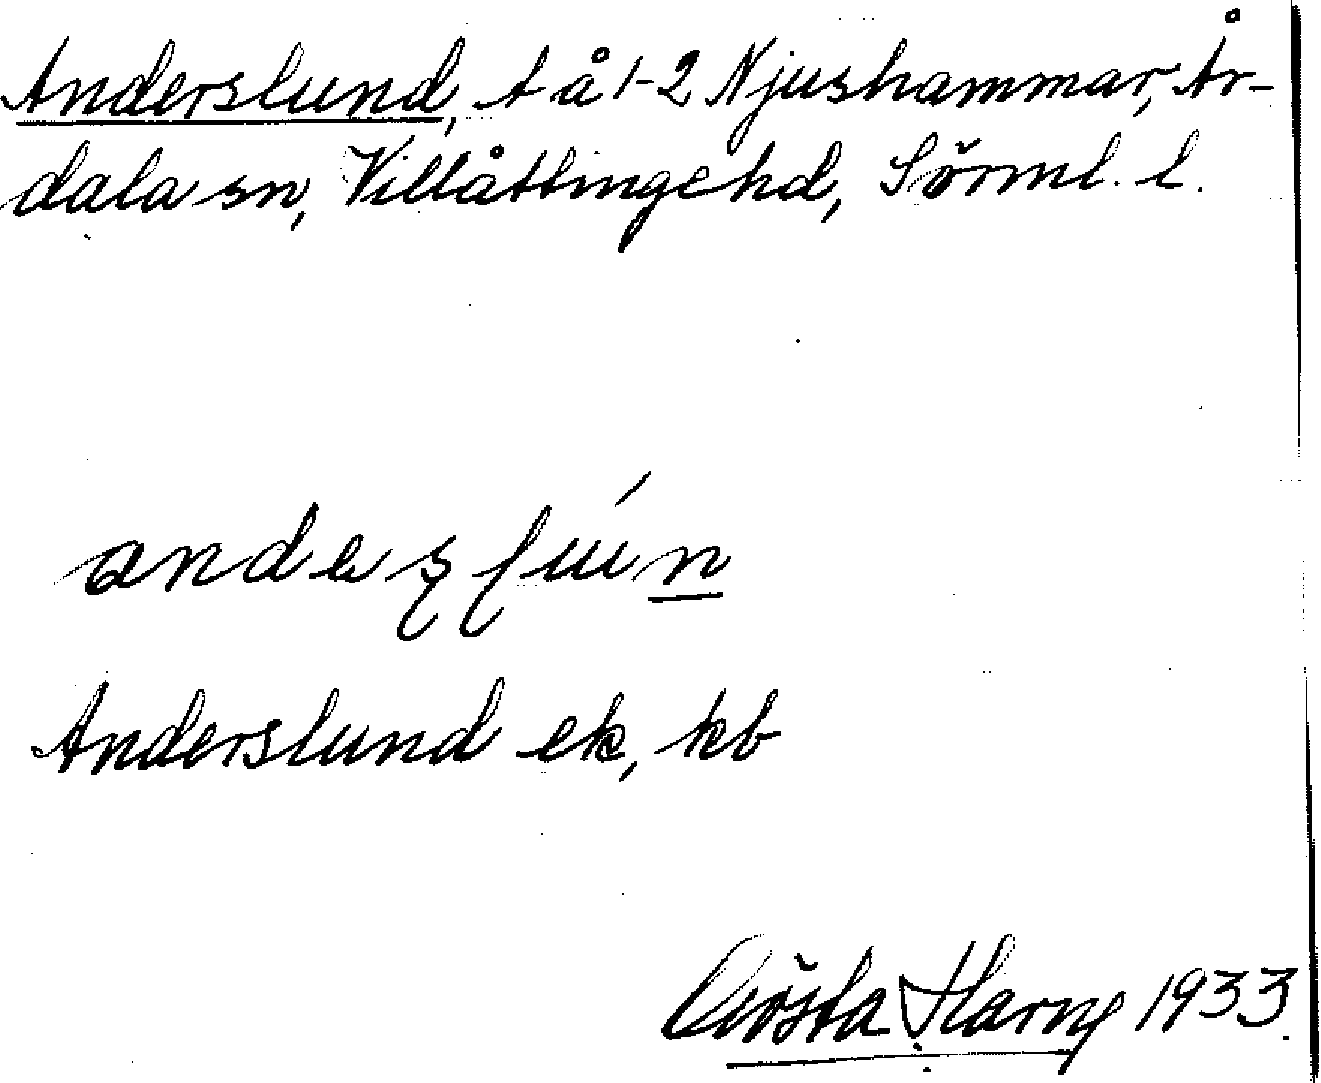 Anderslund, t å 1-2 Njushammar, År-
dala sn, Villåttinge hd, Sörml. l.
Anderslund ek, kb
Gösta Harne 1933.